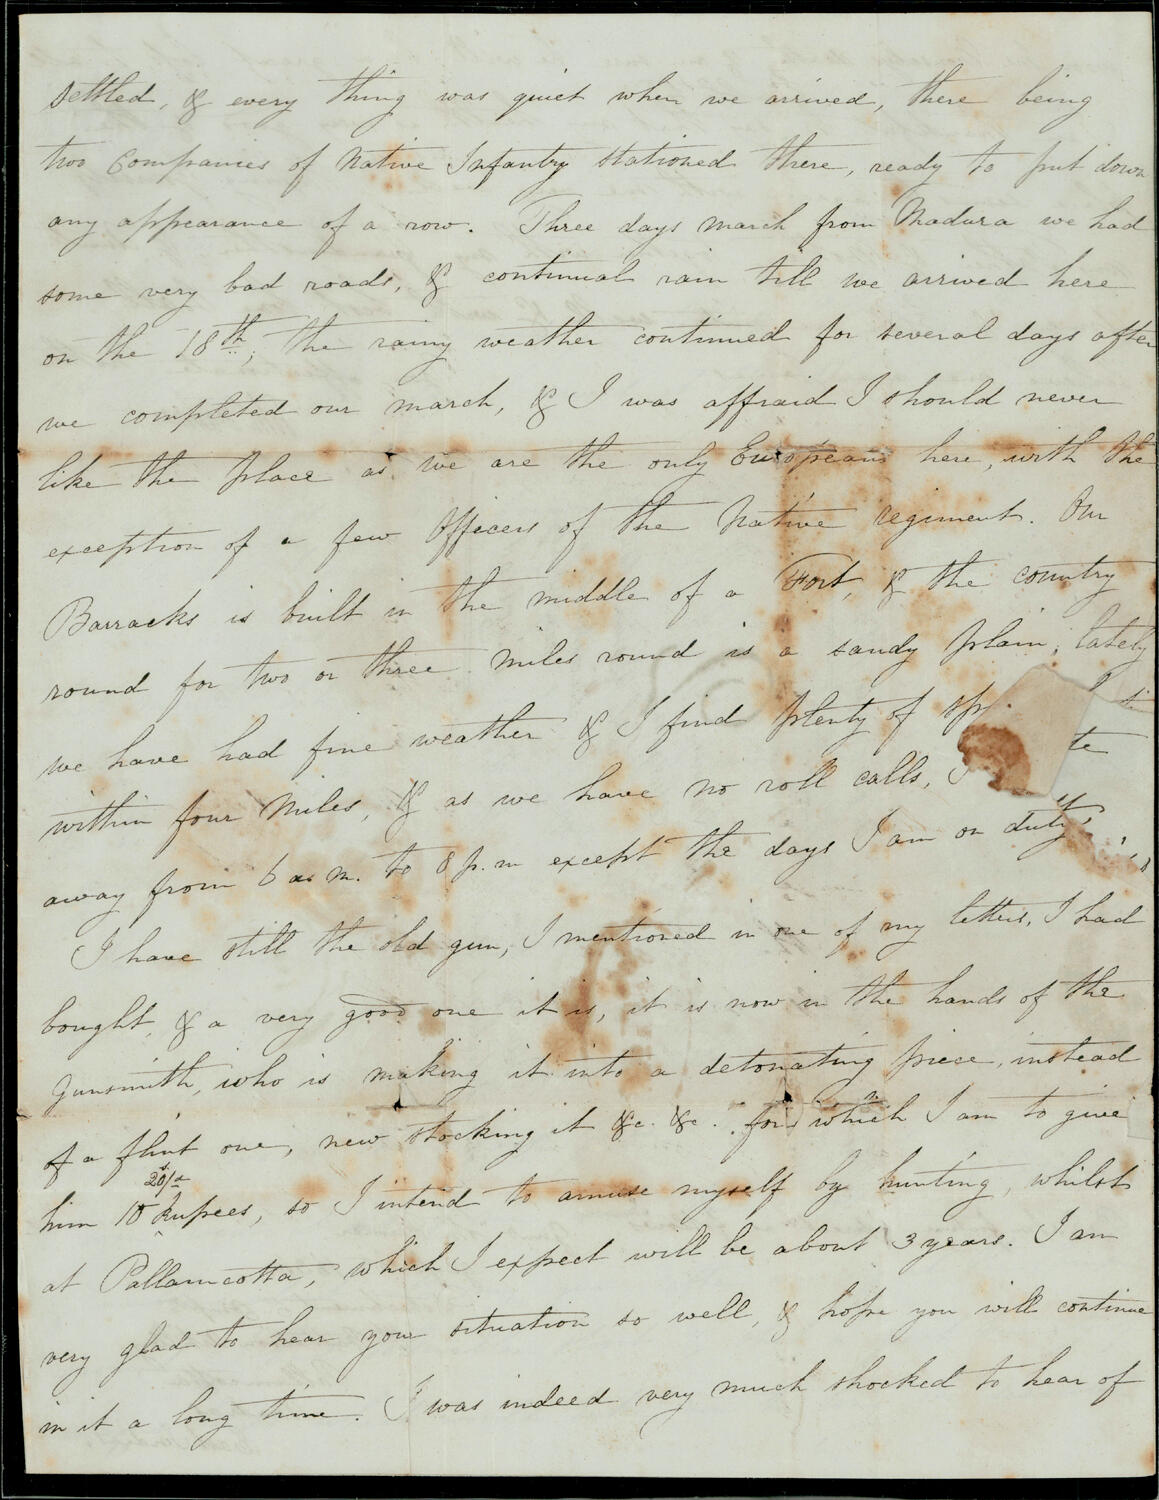 settled, & every thing was quiet when we arrived, there being
two Companies of Native Infantry stationed there, ready to put down
any appearance of a row. Three days march from Madura we had
some very bad roads, & continual rain till we arrived here
on the 18th; the rainy weather continued for several days after
we completed our march, & I was affraid I should never
like the place as we are the only Europeans here, with the
exception of a few Officers of the Native regiment. Our
Barracks is built in the middle of a Fort, & the country
round for two or three miles round is a sandy plain; lately
we have had fine weather & I find plenty of
within four Miles, & as we have no roll calls, I
away from 6 a.m. to 8 p.m except the days I am on duty.
I have still the old gun, I mentioned in one of my letters, I had
bought, & a very good one it is, it is now in the hands of the
Gunsmith, who is making it into a detonating piece, instead
of a flint one, new stocking it &c. &c. for which I am to give
20/-
him 10 Rupees, so I intend to amuse myself by hunting, whilst
at Pallamcotta, which I expect will be about 3 years. I am
very glad to hear your situation so well, & hope you will continue
in it a long time. I was indeed very much shocked to hear of